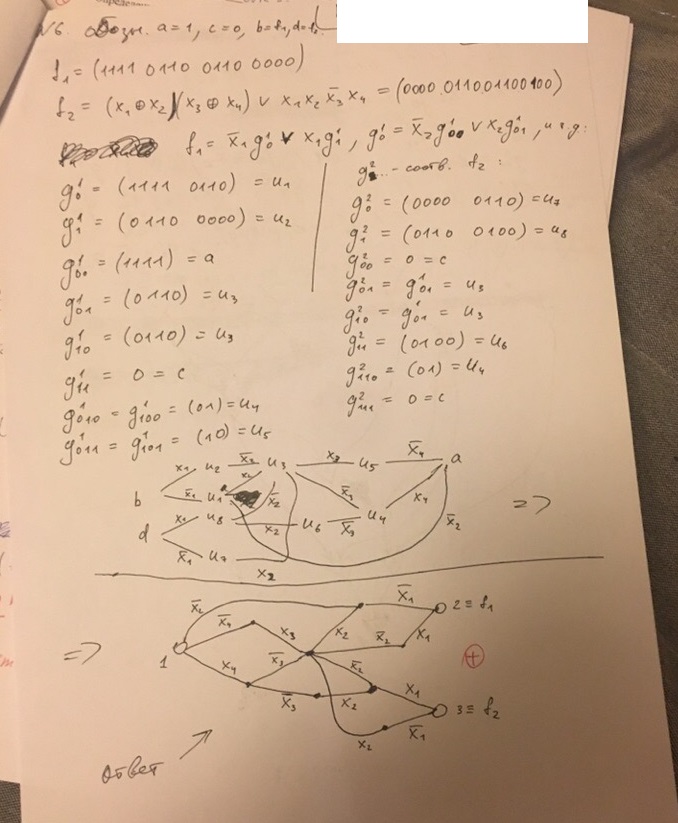 №6. обозн. a = 1, c = 0, b = f₁, d = f₂
f₁ = (1111 0110 0110 0000)
f₂ = (x₁ ⊕ x₂)(x₃ ⊕ x₄) ∨ x₁ x₂ x̄₃ x₄ = (0000 0110 0110 0100)
f₁ = x̄₁ g¹₀ ∨ x₁ g¹₁, g¹₀ = x̄₂ g¹₀₀ ∨ x₂ g¹₀₁, и т.д.
g¹₀ = (1111 0110) = u₁
g¹₁ = (0110 0000) = u₂
g¹₀₀ = (1111) = a
g¹₀₁ = (0110) = u₃
g¹₁₀ = (0110) = u₃
g¹₁₁ = 0 = c
g¹₀₁₀ = g¹₁₀₀ = (01) = u₄
g¹₀₁₁ = g¹₁₀₁ = (10) = u₅
g²... - соотв. f₂:
g²₀ = (0000 0110) = u₇
g²₁ = (0110 0100) = u₈
g²₀₀ = 0 = c
g²₀₁ = g¹₀₁ = u₃
g²₁₀ = g¹₀₁ = u₃
g²₁₁ = (0100) = u₆
g²₁₁₀ = (01) = u₄
g²₁₁₁ = 0 = c
x₁ u₂ x̄₂ u₃ x₃ u₅ x̄₄ a
b x̄₁ u₁ x₂ x̄₂ x̄₃ x₄
d x₁ u₈ x₂ u₆ x̄₃ u₄ x̄₂ =>
x̄₁ u₇ x₂
x̄₂ x̄₁ 2 ≡ f₁
x̄₄ x₃ x₂ x̄₂ x₁
=> 1 x₄ x̄₃ x̄₂ +
x̄₃ x₂ x₁ 3 ≡ f₂
x₂ x̄₁
ответ